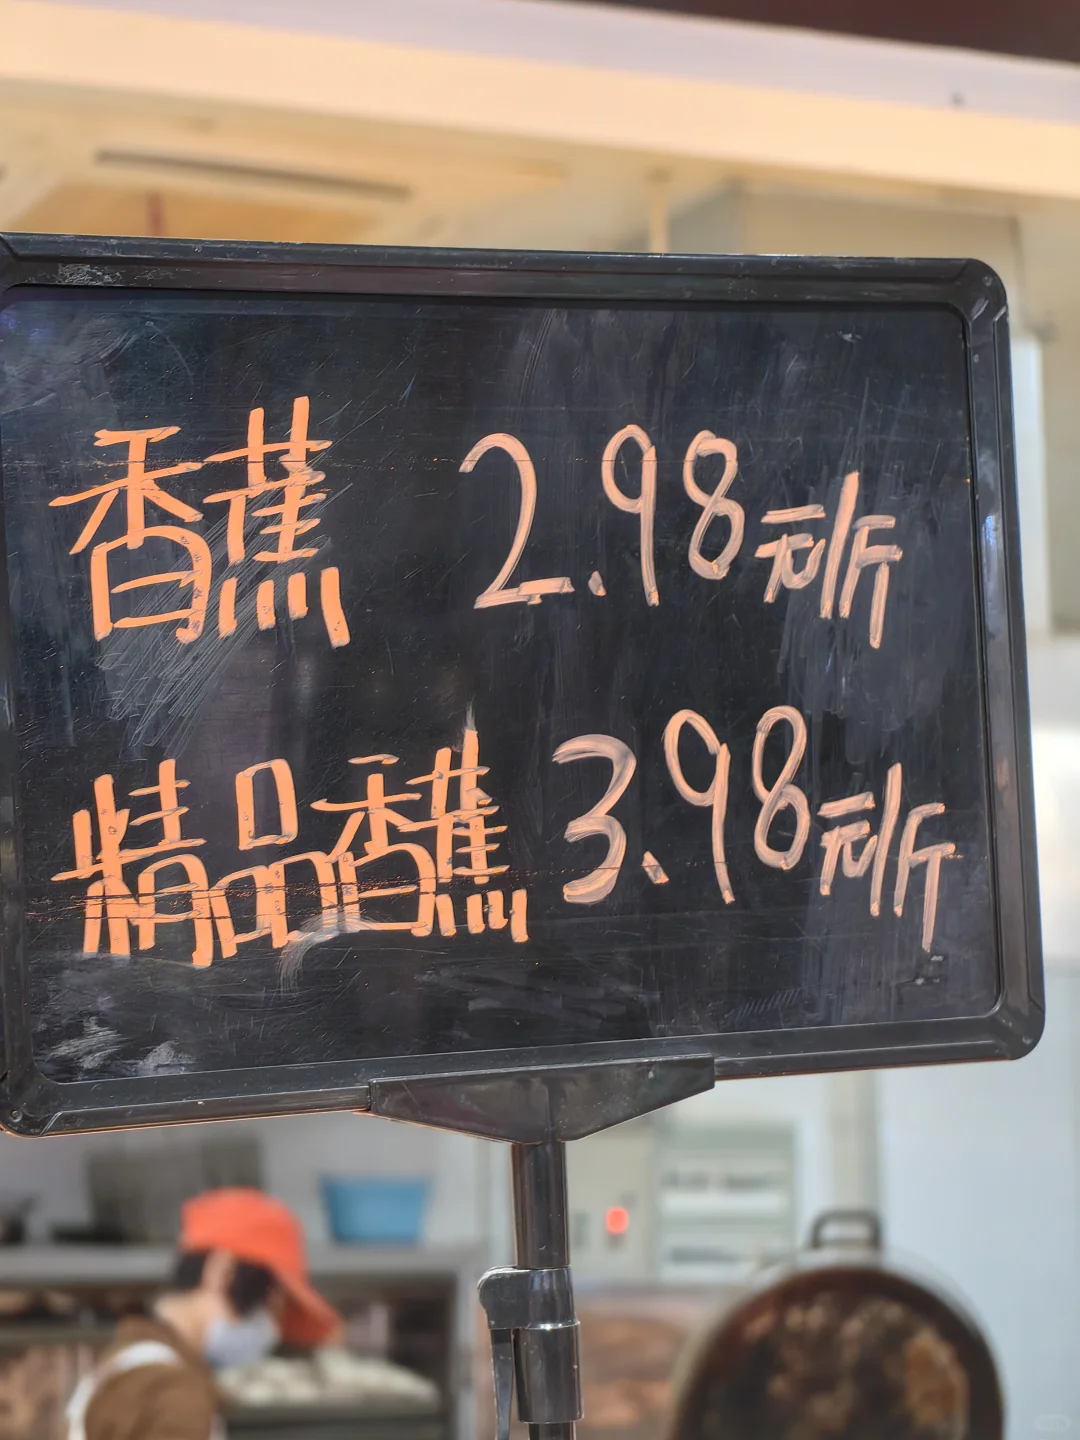 香蕉 2.98元/斤
精品香蕉 3.98元/斤